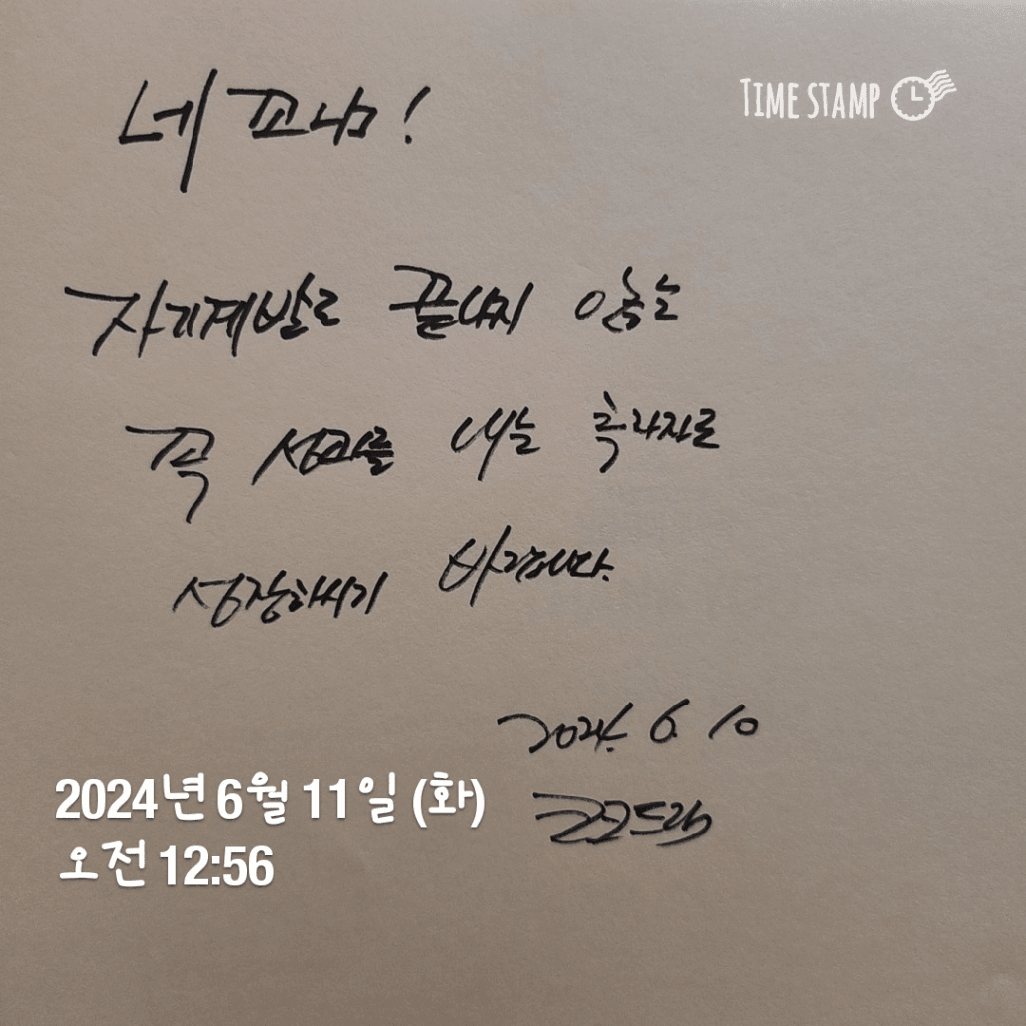 TIME STAMP
네꼬님!
자기계발로 끝나지 않는
꼭 성과를 내는 투자자로
성장하시기 바랍니다.
2024. 6. 10
2024년 6월 11일 (화)
오전 12:56